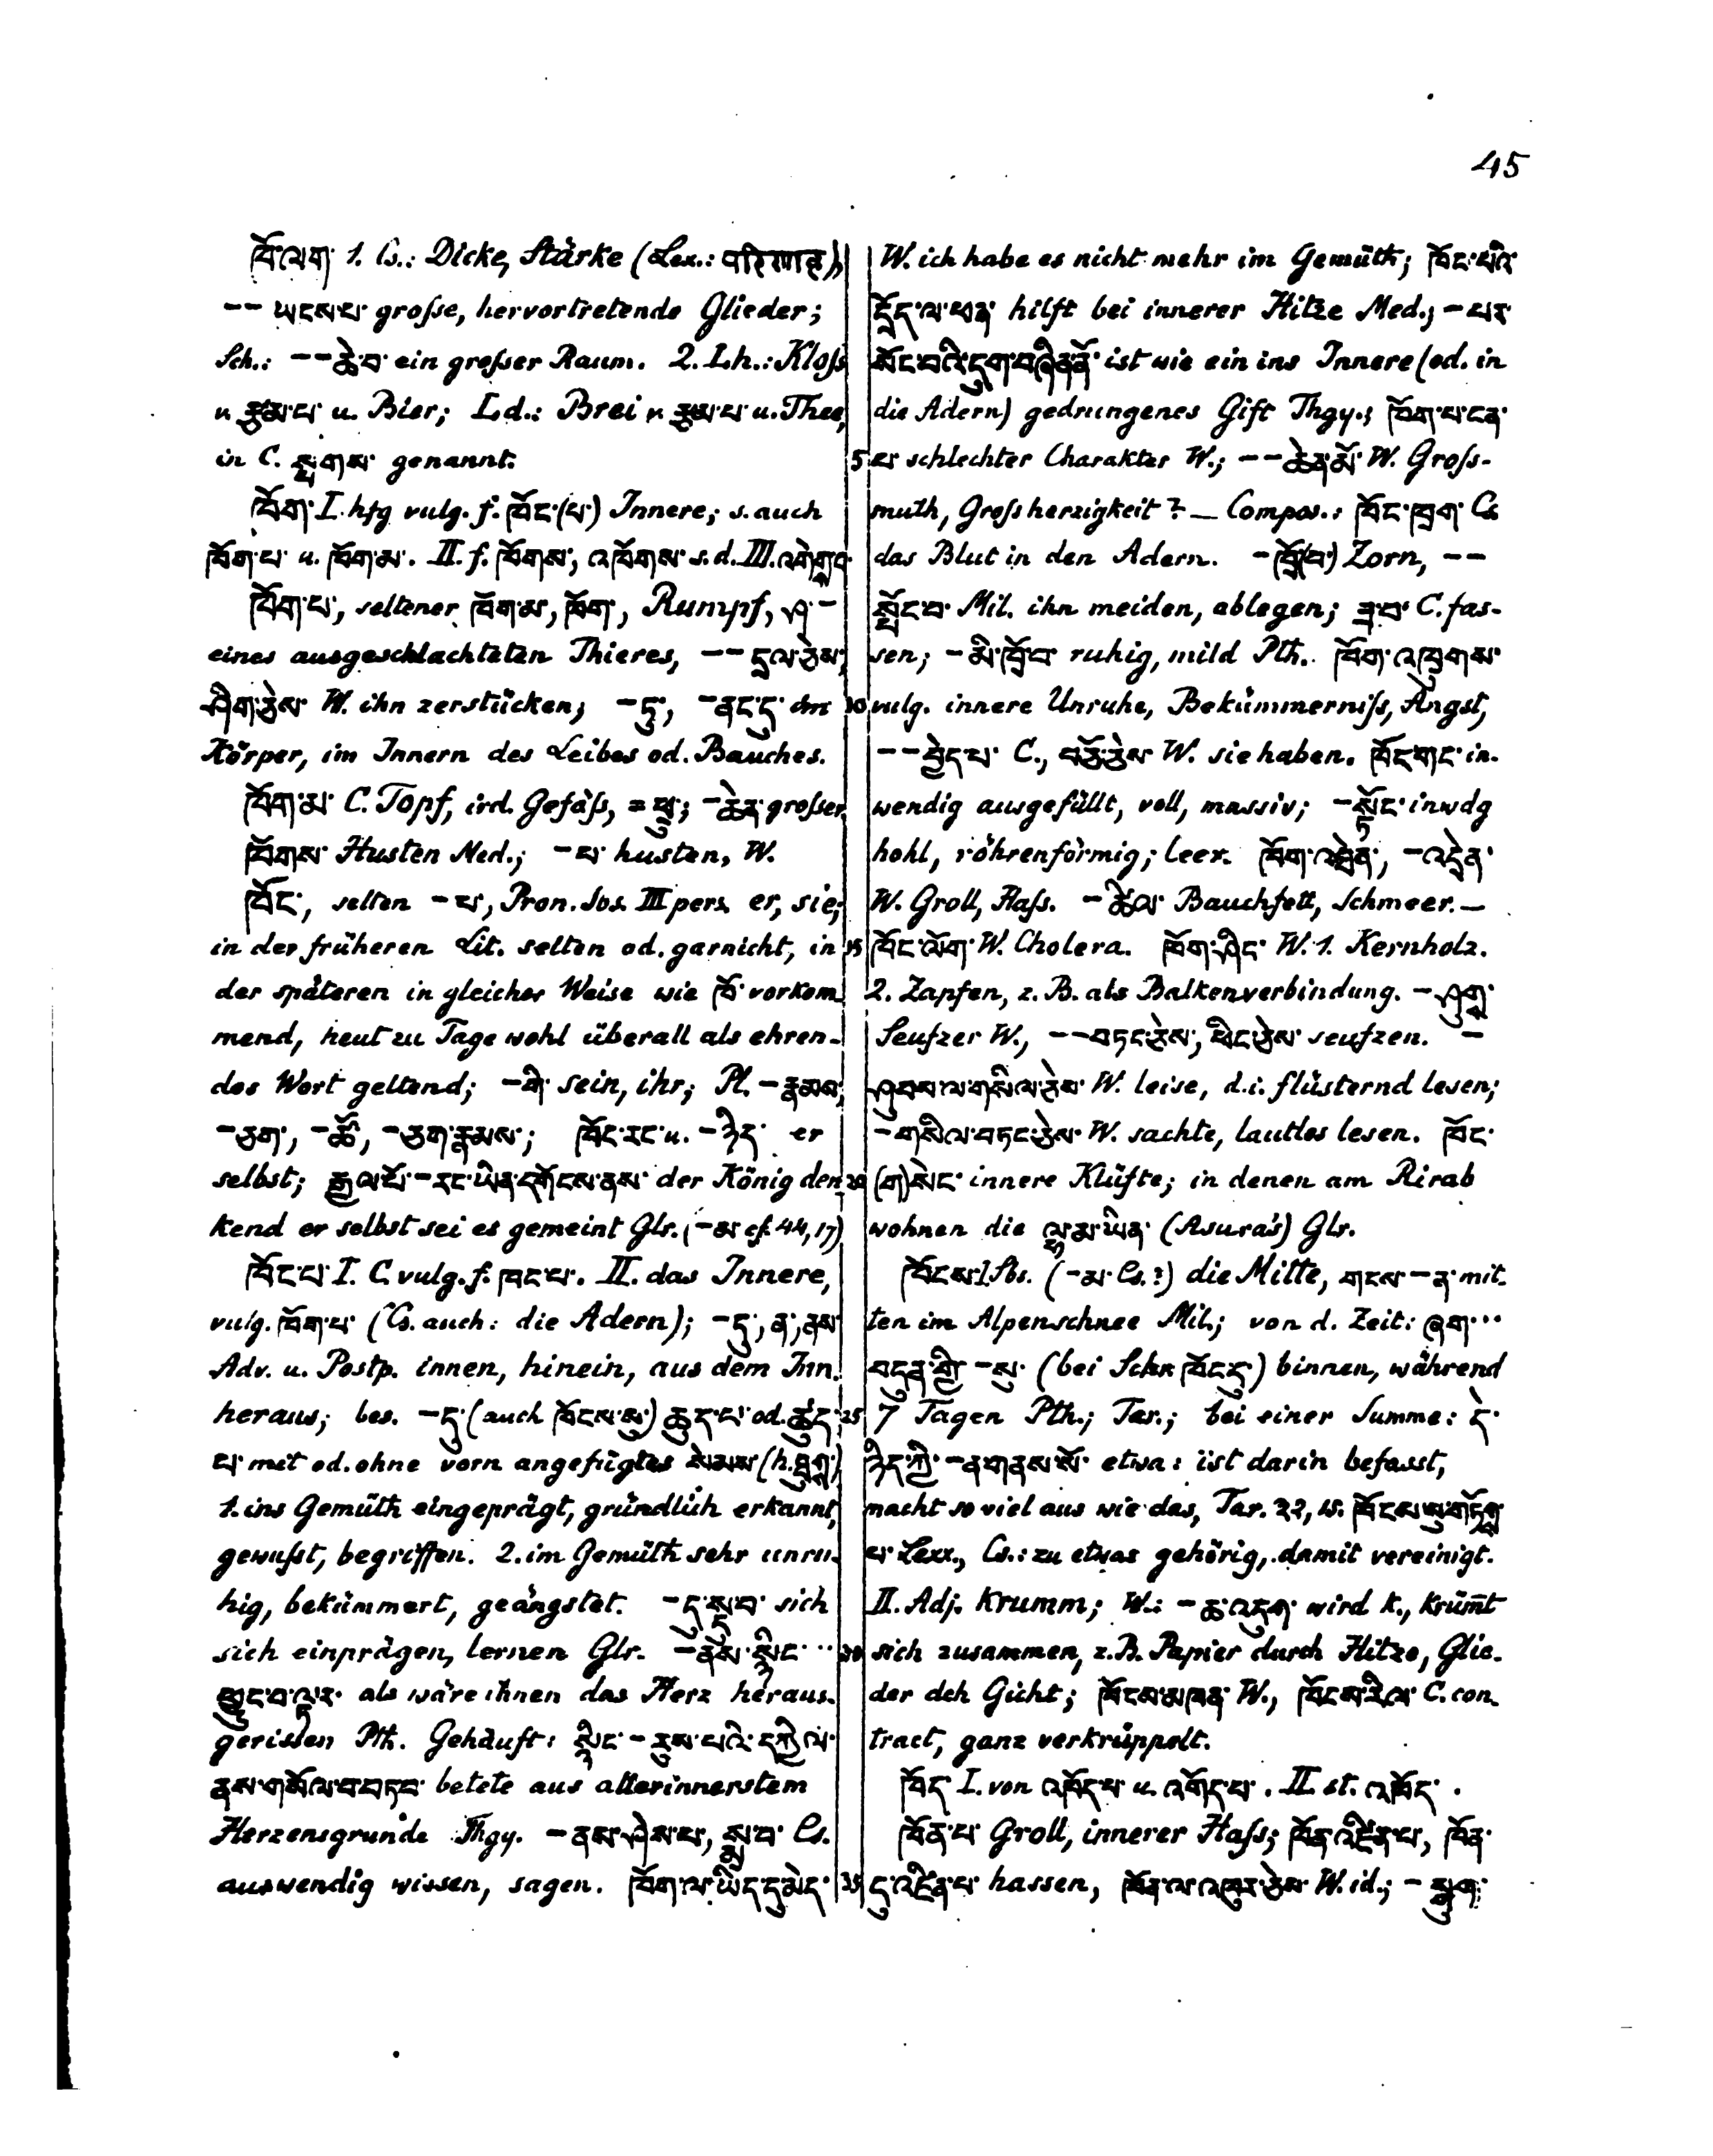 45
ཁོ་ལག་ 1. Cs.: Dicke, Stärke (Lex.: परिणाह)
-- ཡངས་པ་ grosse, hervortretende Glieder;
Sch.: -- ཆེ་བ་ ein grosser Raum. 2. Lh.: Kloss
v. རྩམ་པ་ u. Bier; Ld.: Brei v. རྩམ་པ་ u. Thee,
in C. སྤགས་ genannt.
ཁོག་ I. hfg vulg. f. ཁོང་(པ་) Innere; s. auch
ཁོག་པ་ u. ཁོག་མ་. II. f. ཁོགས་, འཁོགས་ s.d. III.
ཁོག་པ་, seltener ཁོག་མ་, ཁོག་, Rumpf, ཤ་ -
eines ausgeschlachteten Thieres, -- དྲལ་ཅེས་,
ཤིག་ཅེས་ W. ihn zerstücken; - ཏུ་, - ནང་དུ་ im
Körper, im Innern des Leibes od. Bauches.
ཁོག་མ་ C. Topf, ird. Gefäss, = ཕྲུ་; - ཆེན་ grosser
ཁོགས་ Husten Med.; - པ་ husten, W.
ཁོང་, selten - པ་, Pron. Sbs. III pers. er, sie;
in der früheren Lit. selten od. garnicht, in
der späteren in gleicher Weise wie ཁོ་ vorkom-
mend, heut zu Tage wohl überall als ehren-
des Wort geltend; - གི་ sein, ihr; Pl. - རྣམས་,
- ཅག་, - ཚོ་, - ཅག་རྣམས་; ཁོང་རང་ u. - ཉིད་ er
selbst; རྒྱལ་པོ་ - རང་ཡིན་དགོངས་ནས་ der König den-
kend er selbst sei es gemeint Glr. (- མ་ cf. 44, 17)
ཁོང་པ་ I. C. vulg. f. ཁང་པ་. II. das Innere,
vulg. ཁོག་པ་ (Cs. auch: die Adern); - དུ་, ན་, ནས་
Adv. u. Postp. innen, hinein, aus dem Inn.
heraus; bes. - དུ་ (auch ཁོངས་སུ་) ཆུད་པ་ od. ཚུད་
པ་ mit od. ohne vorn angefügtes སེམས་ (h. ཐུགས་)
1. ins Gemüth eingeprägt, gründlich erkannt,
gewusst, begriffen. 2. im Gemüth sehr unru-
hig, bekümmert, geängstet. - དུ་སྡུ་བ་ sich
sich einprägen, lernen Glr. - ནས་སྙིང་ ··
ཕྱུང་བ་ལྟར་ als wäre ihnen das Herz heraus-
gerissen Pth. Gehäuft: སྙིང་ - རུས་པའི་དཀྱིལ་
ནས་གསོལ་བ་བཏབ་ betete aus allerinnerstem
Herzensgrunde Thgy. - ནས་ཤེས་པ་, སྨྲ་བ་ Cs.
auswendig wissen, sagen. ཁོག་ལ་ཡིད་དུ་མེད་
W. ich habe es nicht mehr im Gemüth; ཁོང་པའི་
དྲོད་ལ་ཕན་ hilft bei innerer Hitze Med.; - པར་
སོང་བའི་དུག་བཞིན་ནོ་ ist wie ein ins Innere (od. in
die Adern) gedrungenes Gift Thgy.; ཁོག་པ་ངན་
པ་ schlechter Charakter W.; -- ཆེན་མོ་ W. Gross-
muth, Grossherzigkeit? — Compos.: ཁོང་ཁྲག་ Cs.
das Blut in den Adern. - ཁྲོ་(བ་) Zorn, --
སྤོང་བ་ Mil. ihn meiden, ablegen; ཟ་བ་ C. fas-
sen; - མི་ཁྲོ་བ་ ruhig, mild Pth. ཁོག་འཁྲུགས་
vulg. innere Unruhe, Bekümmerniss, Angst,
-- བྱེད་པ་ C., བཅོ་ཅེས་ W. sie haben. ཁོང་གང་ in-
wendig ausgefüllt, voll, massiv; - སྟོང་ inwdg
hohl, röhrenförmig; leer. ཁོག་འཁྲེན་, - འདྲེན་
W. Groll, Hass. - ཚིལ་ Bauchfett, Schmeer. —
ཁོང་ལོག་ W. Cholera. ཁོག་ཤིང་ W. 1. Kernholz.
2. Zapfen, z. B. als Balkenverbindung. - ཤུགས་
Seufzer W., -- བཏང་ཅེས་, ཕིང་ཅེས་ seufzen. -
ཤུབས་ལ་གསིལ་ཅེས་ W. leise, d. i. flüsternd lesen;
- གསིལ་བཏང་ཅེས་ W. sachte, lautlos lesen. ཁོང་
(ག)སེང་ innere Klüfte; in denen am Rirab
wohnen die ལྷ་མ་ཡིན་ (Asura's) Glr.
ཁོངས་ I. Sbs. (- མ་ Cs.?) die Mitte, གངས་ - ན་ mit-
ten im Alpenschnee Mil.; von d. Zeit: ཞག་ ···
བདུན་གྱི་ - སུ་ (bei Schr. ཁོང་དུ་) binnen, während
7 Tagen Pth.; Tar.; bei einer Summe: དེ་
ཉིད་ཀྱི་ - ན་གནས་སོ་ etwa: ist darin befasst,
macht so viel aus wie das, Tar. 32, 15. ཁོངས་སུ་གཏོགས་
པ་ Lexx., Cs.: zu etwas gehörig, damit vereinigt.
II. Adj. krumm; W.: - ཆ་འདུག་ wird k., krüm̄t
sich zusammen, z. B. Papier durch Hitze, Glie-
der dch Gicht; ཁོངས་མཁན་ W., ཁོངས་རིལ་ C. con-
tract, ganz verkrüppelt.
ཁོད་ I. von འཁོད་པ་ u. འགོད་པ་. II. st. འཁོད་.
ཁོན་པ་ Groll, innerer Hass; ཁོན་འཛིན་པ་, ཁོན་
དུ་འཛིན་པ་ hassen, ཁོན་ལ་འཁུར་ཅེས་ W. id.; -
5
10
15
20
25
30
35